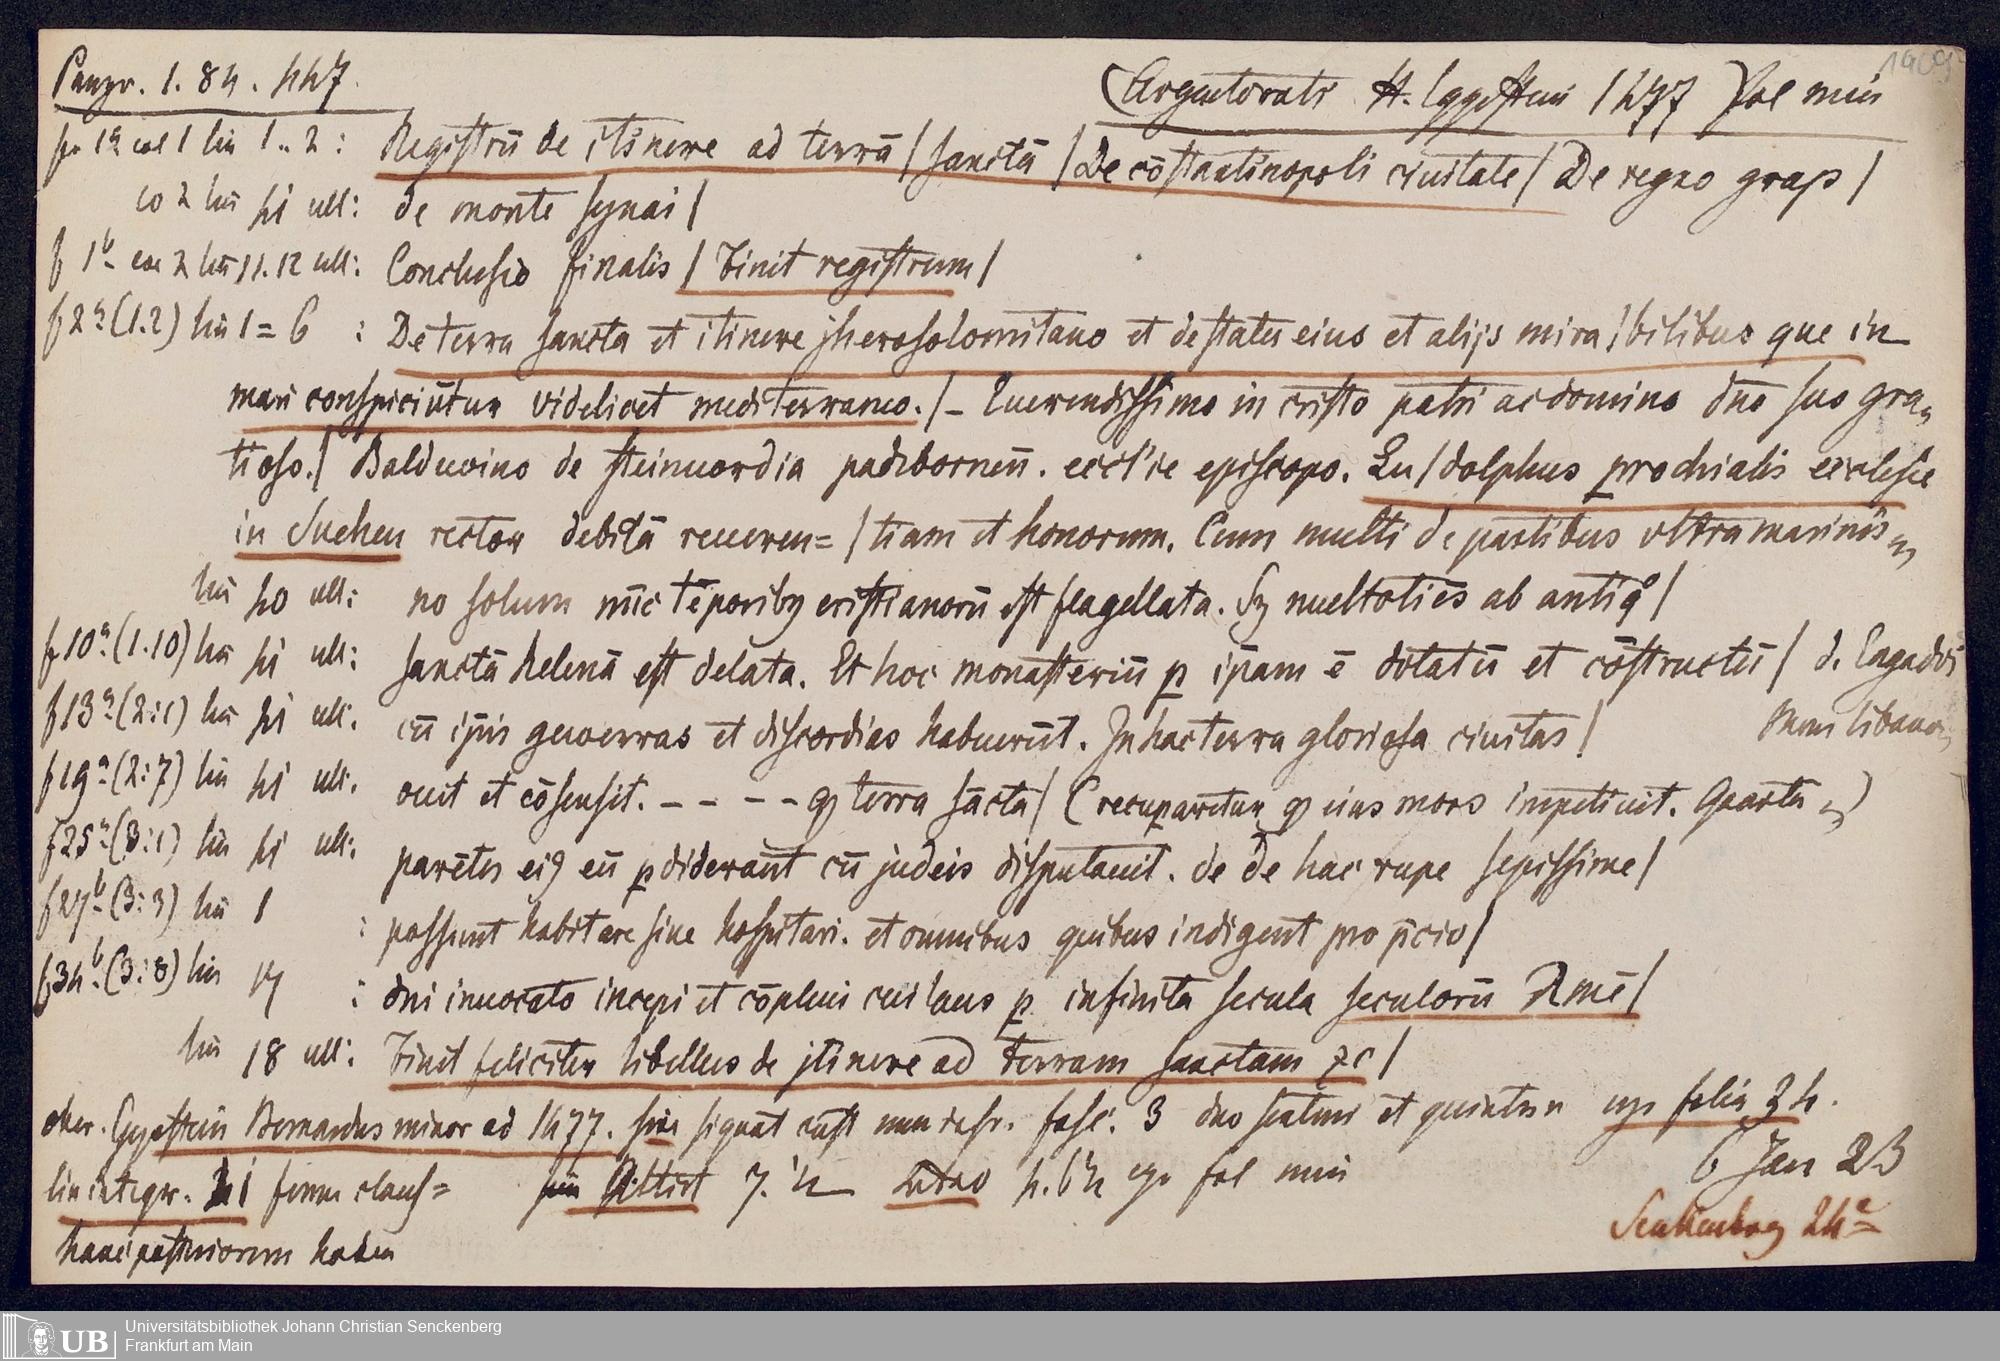 Panzr. 1. 84. 447.
(Argentorati H. Eggestein 1477) fol min
1a col 1 lin 1..2: Registrū de itinere ad terrā / sanctā / De cōstantinopoli ciuitate / De regno grap /
co 2 lin 41 ult: de monte synai /
f 1b col 2 lin 11.12 ult: Conclusio finalis / Finit registrum /
f 2a (1.2) lin 1 = 6 : De terra sancta et itinere jherosolomitano et de statu eius et alijs mira / bilibus que in
mari conspiciūtur videlicet mediterraneo. / – Reuerendissimo in cristo patri ac domino dno suo gra=
tioso. / Balduuino de steinuordia padebornen. eccl'ie episcopo. Lu / dolphus prochialis ecclesie
in Suchen rector debitā reueren= / tiam et honorum. Cum multi de partibus vltramarinis
lin 40 ult: no solum nūc tēporiby cristianorū est flagellata. Sz multoties ab antiq° /
f 10a (1.10) lin 41 ult: sanctā helenā est delata. Et hoc monasteriū p ip̄am ē dotatū et cōstructū /
f 13a (2:1) lin 41 ult. cū ip̄is gewerras et discordias habuerūt. In hac terra gloriosa ciuitas /
Mons libanon
f 19a (2:7) lin 41 ult. ouit et cōsensit. – – – – q terra sācta / (recuparetur q eius mors inpetiuit. Quarta )
f 25a (3:1) lin 41 ult. parētes ei9 eū pdiderant cū judeis disputauit. de De hac rupe sepissime /
f 27b (3:3) lin 1 : possunt habitare siue hospitari. et omnibus quibus indigent pro p̄cio /
f 34b (3:8) lin 17 : dni inuocato incepi et cōpleui cui laus p infinita secula seculorū Amē /
lin 18 ult: Finit feliciter libellus de jtinere ad terram sanctam zc /
char. Eggestein Bernardus minor ad 1477. sine signat cust num fasc. 3 duo et quintern fol 34.
lin integr. 41 forma claus=
h. 64 fol min
6 Jan 23
Senckenberg 24a
Universitätsbibliothek Johann Christian Senckenberg
UB Frankfurt am Main